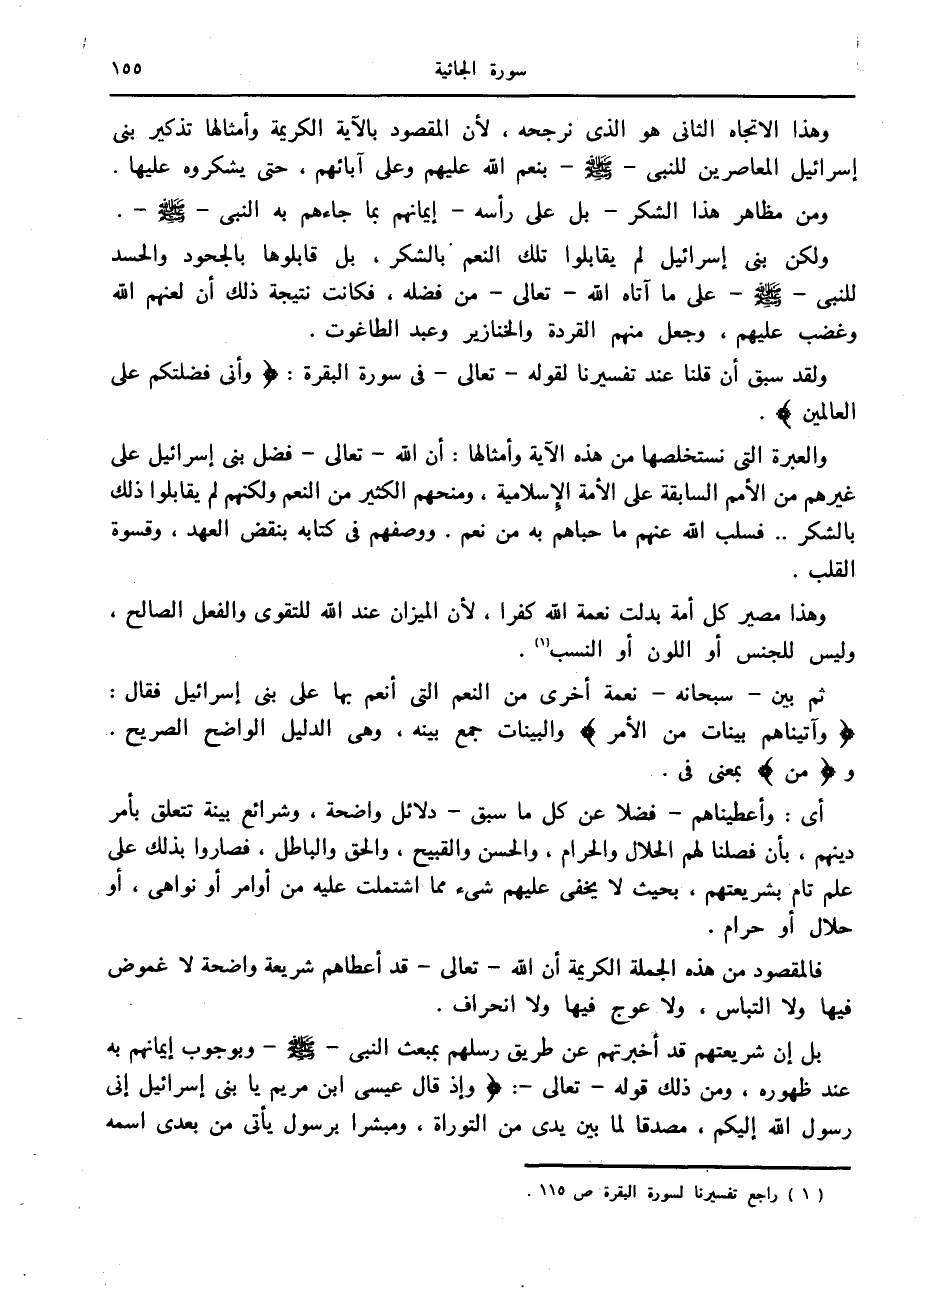 سورة الجاثية ١٥٥
وهذا الاتجاه الثانى هو الذى نرجحه ، لأن المقصود بالآية الكريمة وأمثالها تذكير بنى
إسرائيل المعاصرين للنبى – ﷺ – بنعم الله عليهم وعلى آبائهم ، حتى يشكروه عليها .
ومن مظاهر هذا الشكر – بل على رأسه – إيمانهم بما جاءهم به النبى – ﷺ – .
ولكن بنى إسرائيل لم يقابلوا تلك النعم بالشكر ، بل قابلوها بالجحود والحسد
للنبى – ﷺ – على ما آتاه الله – تعالى – من فضله ، فكانت نتيجة ذلك أن لعنهم الله
وغضب عليهم ، وجعل منهم القردة والخنازير وعبد الطاغوت .
ولقد سبق أن قلنا عند تفسيرنا لقوله – تعالى – فى سورة البقرة : ﴿ وأنى فضلتكم على
العالمين ﴾ .
والعبرة التى نستخلصها من هذه الآية وأمثالها : أن الله – تعالى – فضل بنى إسرائيل على
غيرهم من الأمم السابقة على الأمة الإسلامية ، ومنحهم الكثير من النعم ولكنهم لم يقابلوا ذلك
بالشكر .. فسلب الله عنهم ما حباهم به من نعم . ووصفهم فى كتابه بنقض العهد ، وقسوة
القلب .
وهذا مصير كل أمة بدلت نعمة الله كفرا ، لأن الميزان عند الله للتقوى والفعل الصالح ،
وليس للجنس أو اللون أو النسب(١) .
ثم بين – سبحانه – نعمة أخرى من النعم التى أنعم بها على بنى إسرائيل فقال :
﴿ وآتيناهم بينات من الأمر ﴾ والبينات جمع بينه ، وهى الدليل الواضح الصريح .
و ﴿ من ﴾ بمعنى فى .
أى : وأعطيناهم – فضلا عن كل ما سبق – دلائل واضحة ، وشرائع بينة تتعلق بأمر
دينهم ، بأن فصلنا لهم الحلال والحرام ، والحسن والقبيح ، والحق والباطل ، فصاروا بذلك على
علم تام بشريعتهم ، بحيث لا يخفى عليهم شىء مما اشتملت عليه من أوامر أو نواهى ، أو
حلال أو حرام .
فالمقصود من هذه الجملة الكريمة أن الله – تعالى – قد أعطاهم شريعة واضحة لا غموض
فيها ولا التباس ، ولا عوج فيها ولا انحراف .
بل إن شريعتهم قد أخبرتهم عن طريق رسلهم بمبعث النبى – ﷺ – وبوجوب إيمانهم به
عند ظهوره ، ومن ذلك قوله – تعالى –: ﴿ وإذ قال عيسى ابن مريم يا بنى إسرائيل إنى
رسول الله إليكم ، مصدقا لما بين يدى من التوراة ، ومبشرا برسول يأتى من بعدى اسمه
( ١ ) راجع تفسيرنا لسورة البقرة ص ١١٥ .